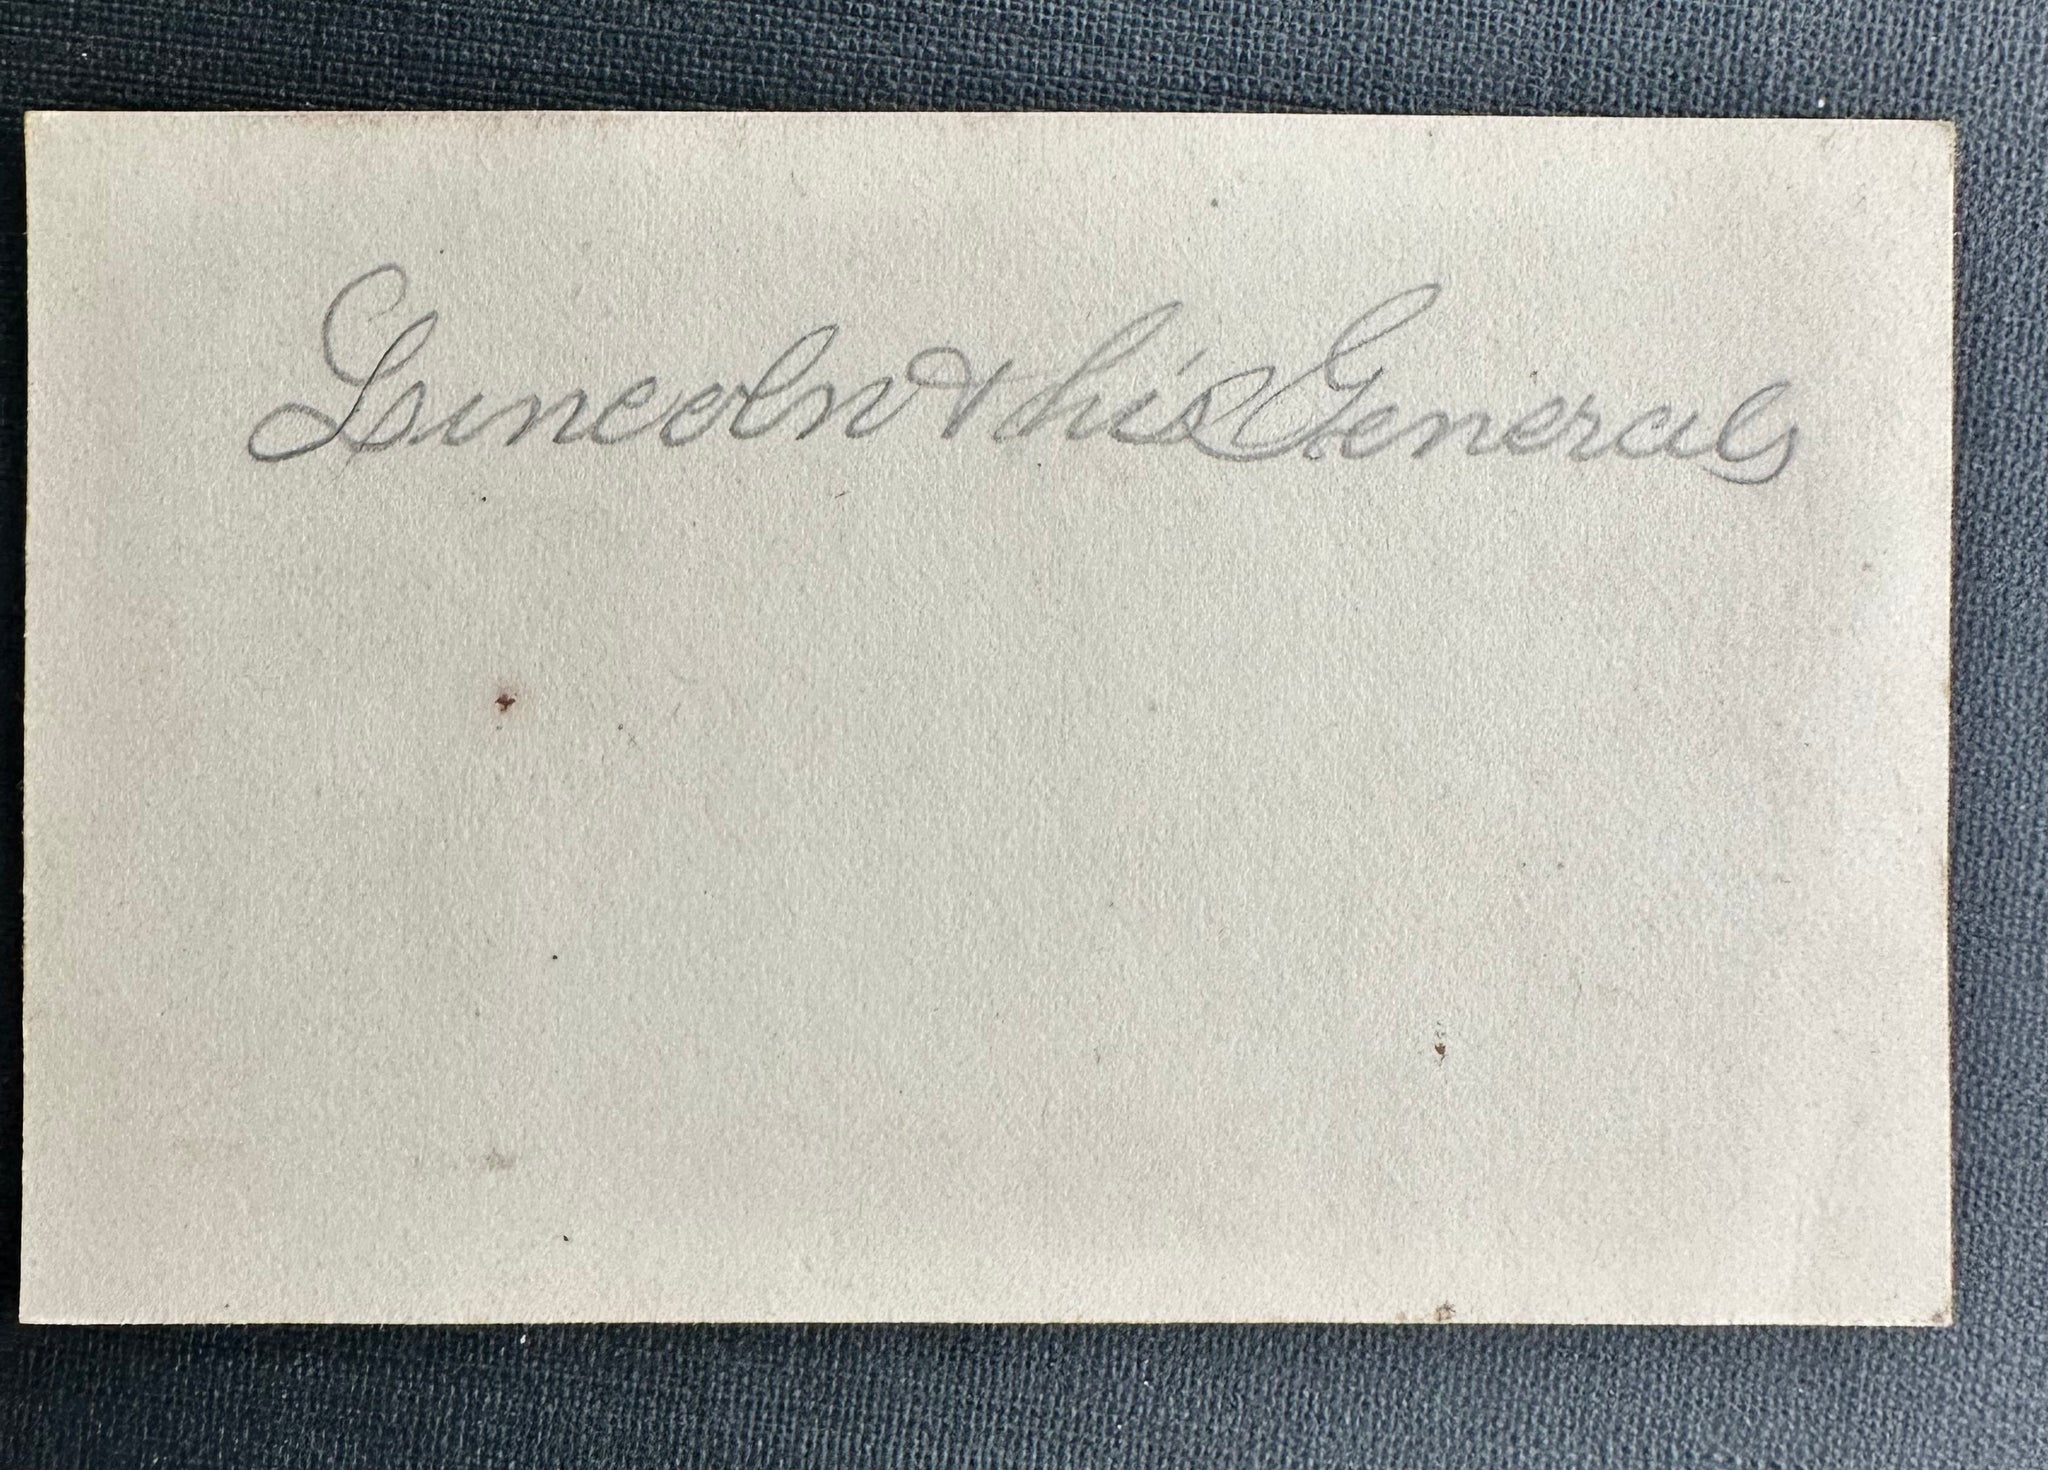 Lincoln & his Generals